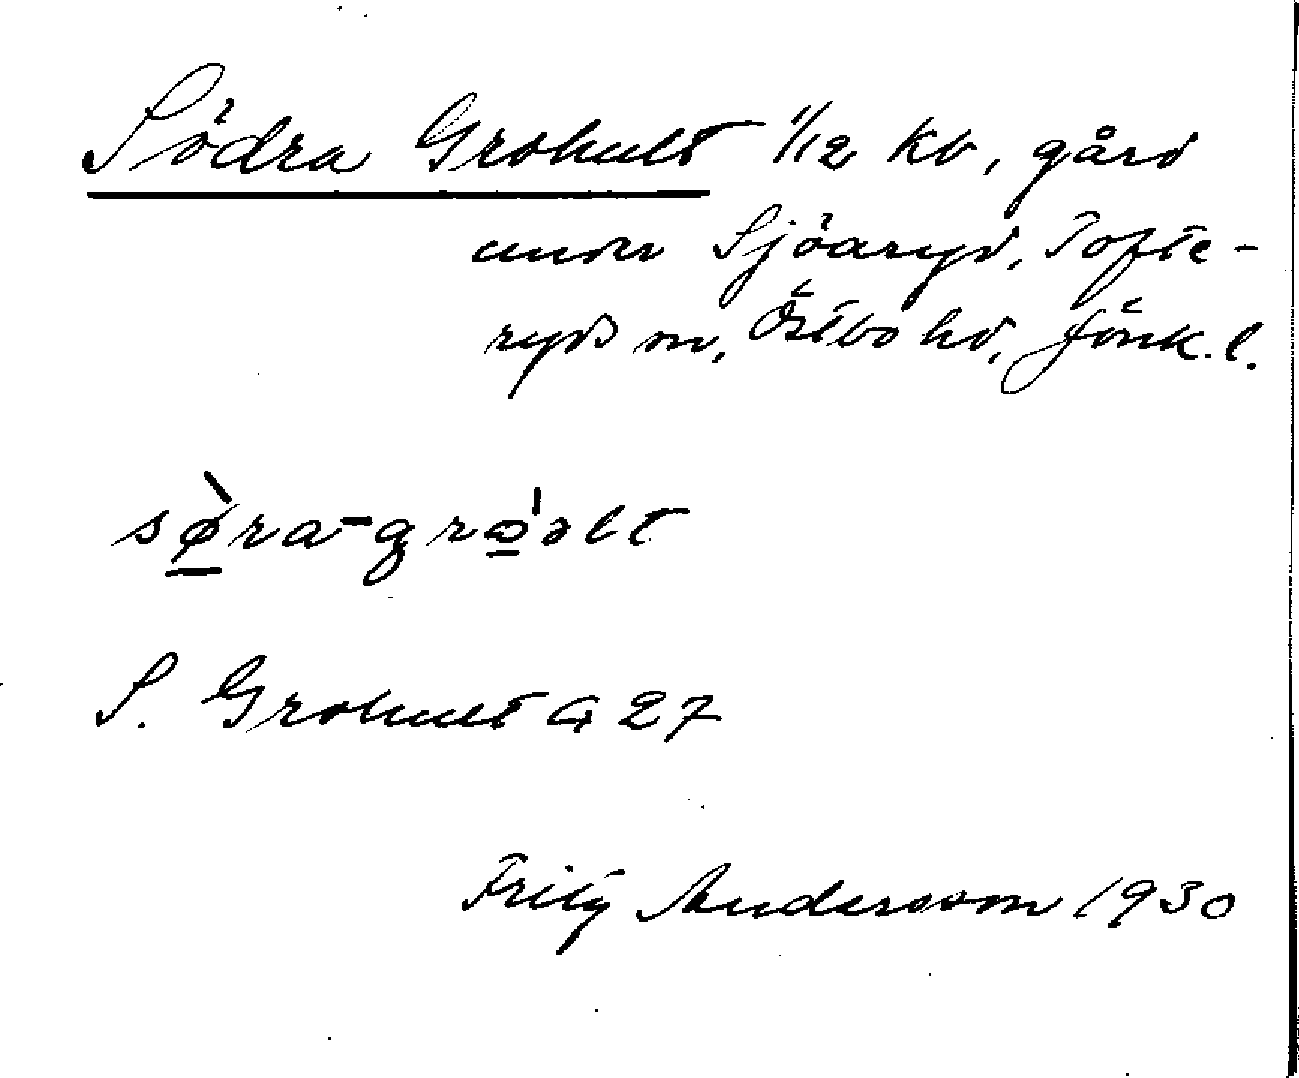 Södra Grohult 1/12 kv, gård
under Sjöaryd, Tofte-
ryds sn, Östbo hd, Jönk. l.
sø̀ra-grω'əlt
S. Grohult G 27
Fritz Andersson 1930